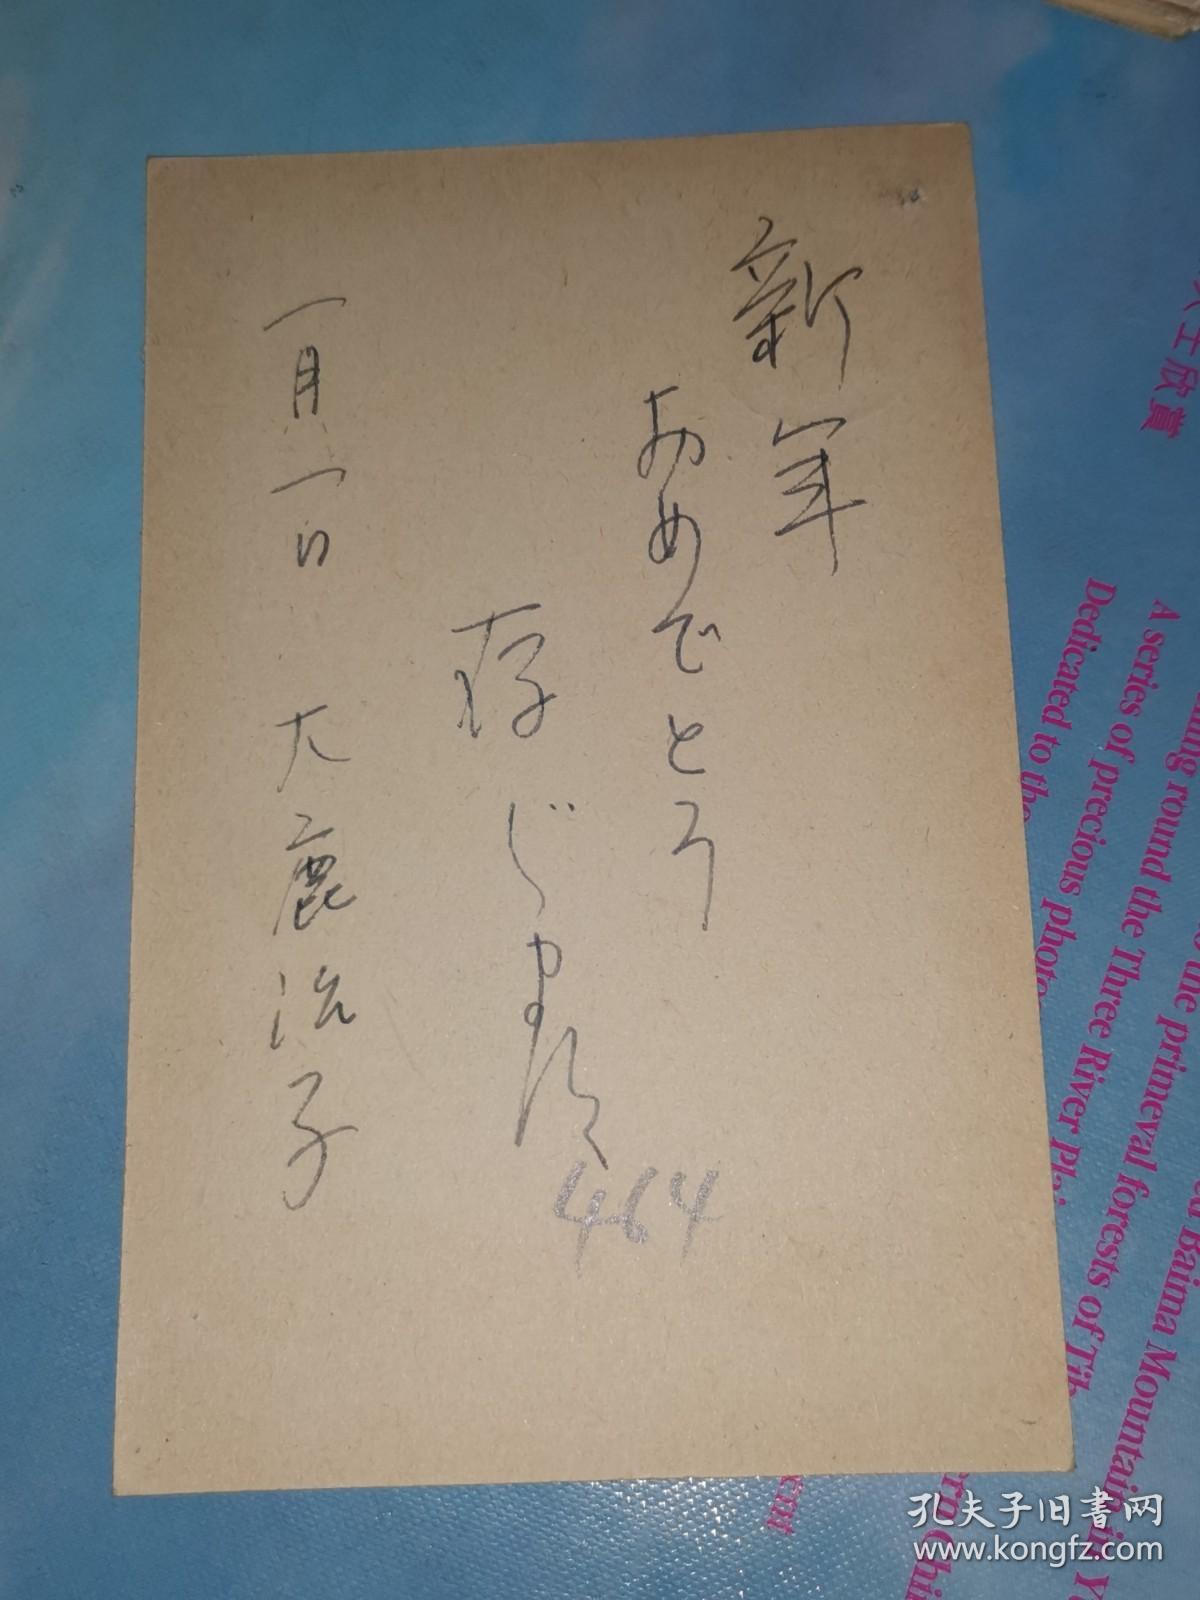 新年
おめでとう
存じます
一月一日 大鹿治子
464
士欣賞
A series of precious photo
Dedicated to the
ning round the Three River Pl
the primeval forests of Tib
Baima Mountain in Y
ern Chi
孔夫子旧书网
www.kongfz.com